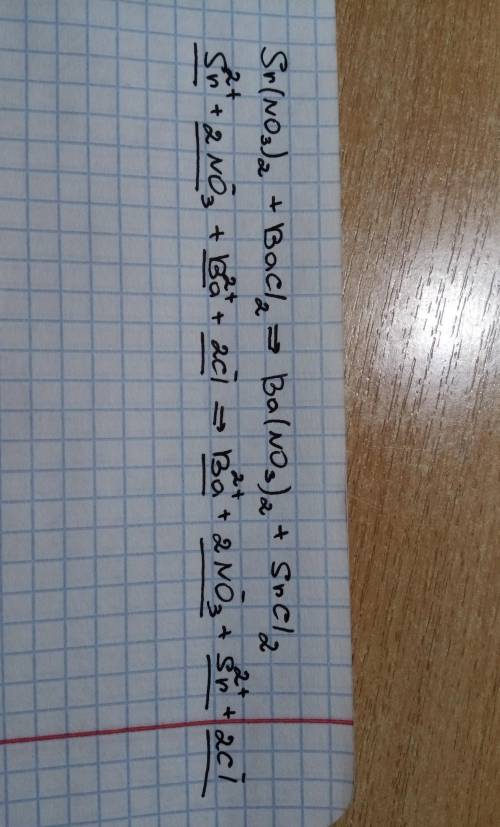 Sr(NO₃)₂ + BaCl₂ ⇒ Ba(NO₃)₂ + SrCl₂
Sr²⁺ + 2NO₃⁻ + Ba²⁺ + 2Cl⁻ ⇒ Ba²⁺ + 2NO₃⁻ + Sr²⁺ + 2Cl⁻